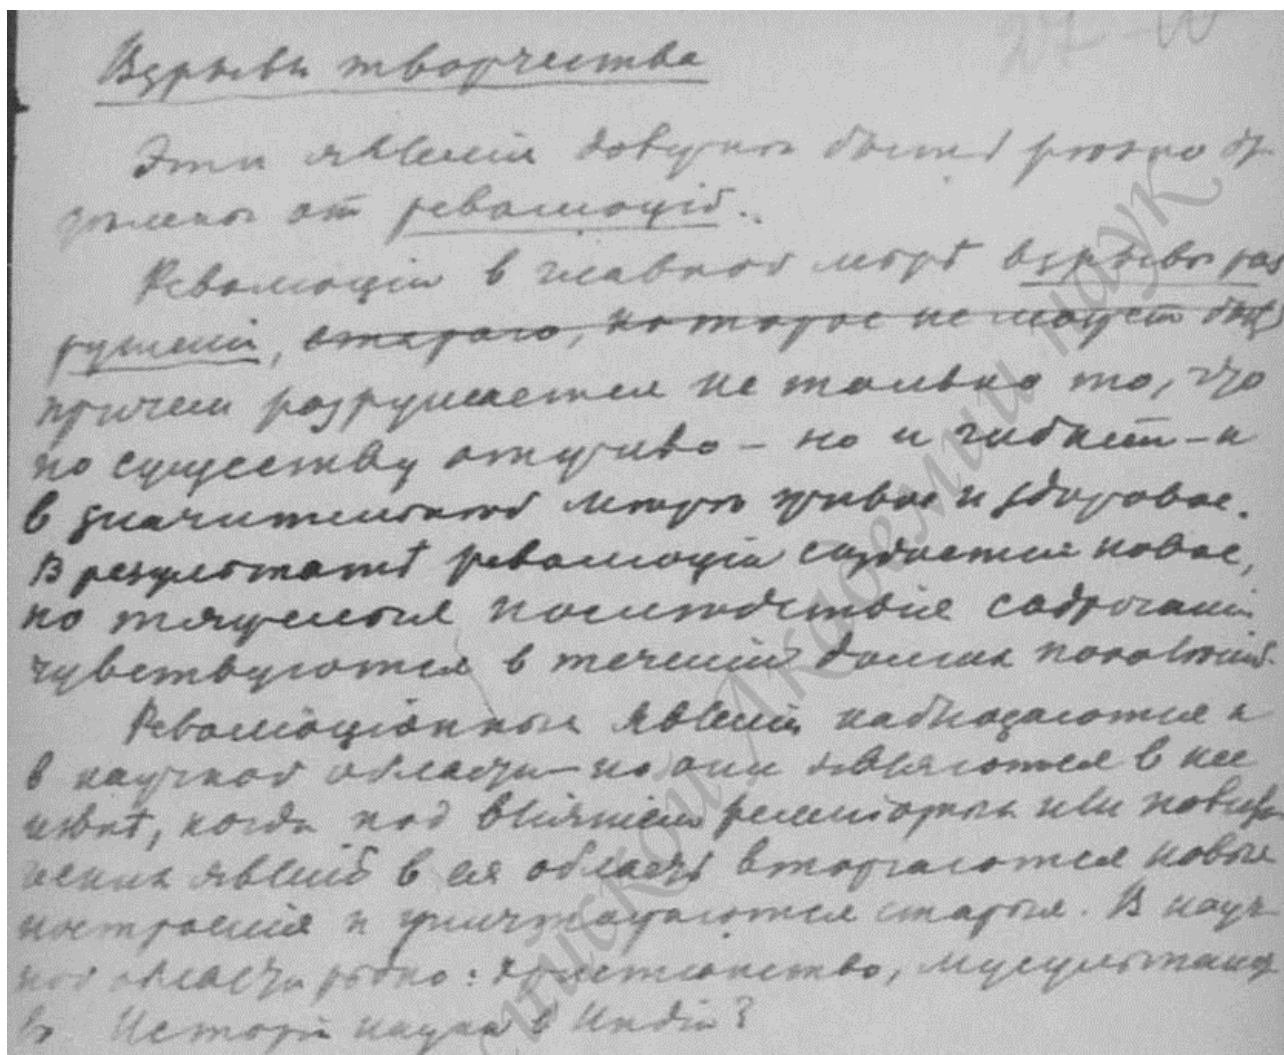 Взрывы творчества
Эти явленія должны быть резко от-
делены от революцій.
Революціи в главной мере взрывы раз
рушенія, стараго, которое не может быть
причем разрушается не только то, что
по существу отжило – но и гибнет – и
в значительной мере живое и здоровое.
В результате революціи создается новое,
но тяжелыя последствія содроганія
чувствуются в теченіи долгих поколеній.
Революціонные явленія наблюдаются и
в научной области – но они являются в нее
извне, когда под вліянием религіозных или
явленій в ея область вторгаются новые
построенія и уничтожаются старыя. В науч-
ной области редко: христіанство, мусульманст
во. Исторія науки в Индіи?